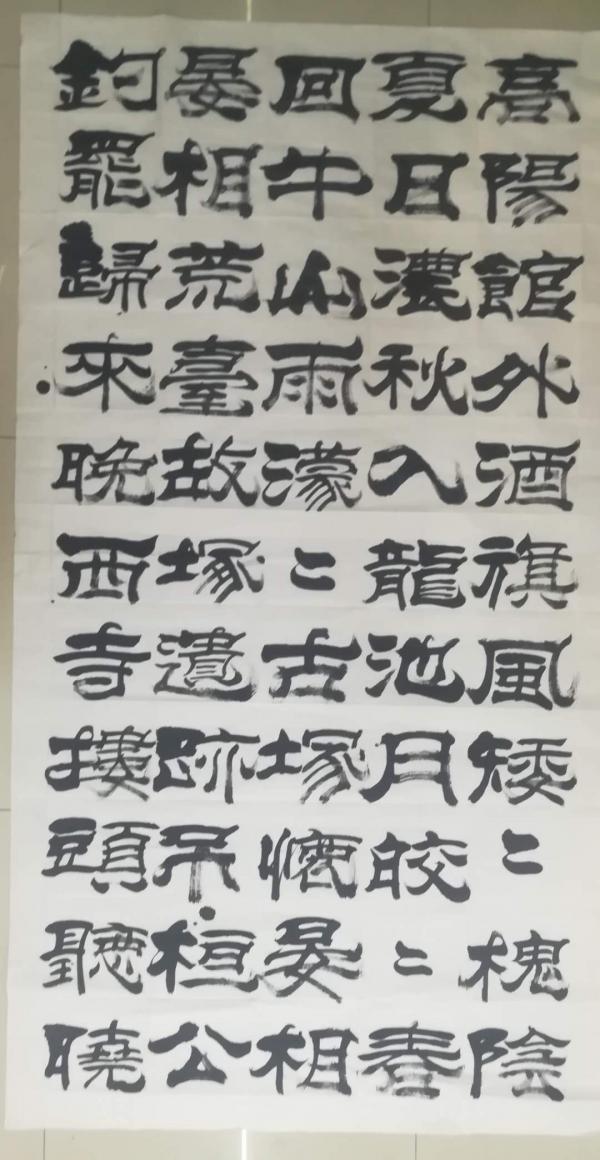 高陽館外酒旗風矮〻槐陰
夏日濃秋入龍池月皎〻春
回牛山雨濛〻古塚懷晏相
晏相荒臺故塚遺跡吊桓公
釣罷歸來晚西寺樓頭聽曉